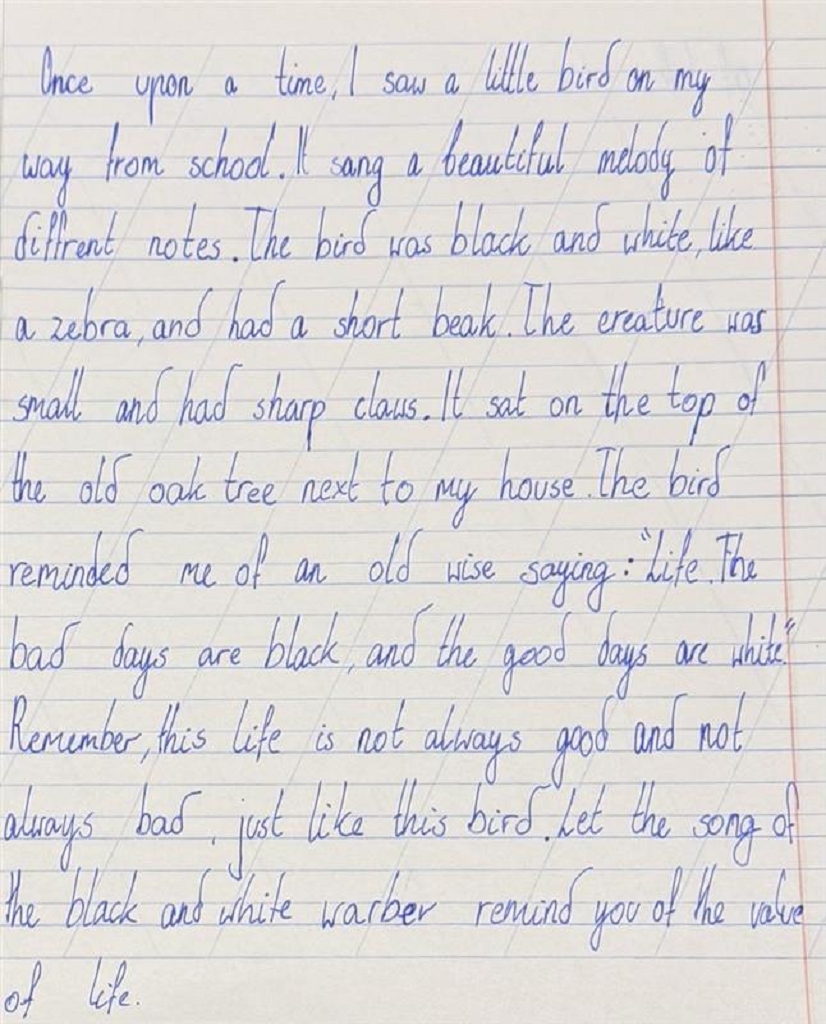 Once upon a time, I saw a little bird on my
way from school. It sang a beautiful melody of
diffrent notes. The bird was black and white, like
a zebra, and had a short beak. The creature was
small and had sharp claws. It sat on the top of
the old oak tree next to my house. The bird
reminded me of an old wise saying: "Life. The
bad days are black, and the good days are white"
Remember, this life is not always good and not
always bad, just like this bird. Let the song of
the black and white warber remind you of the value
of life.